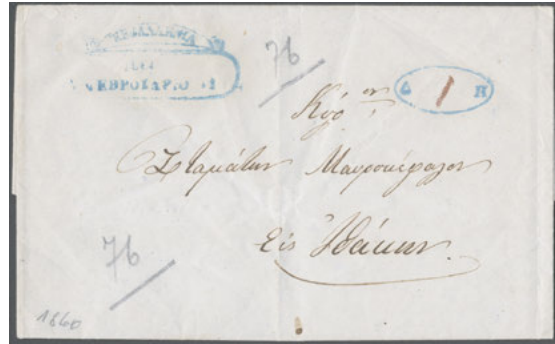 ΦΕΒΡΟΥΑΡΙΟ
76
Δ 1 Η
Κύρ ον
Σταμάτιον Μαυροκέφαλον
Εἰς Ἰθάκην.
76
1860